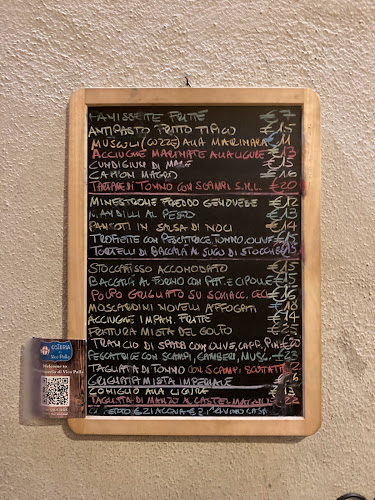 PANISSETTE FRITTE €7
ANTIPASTO FRITTO TIPICO €15
MUSCOLI (COZZE) ALLA MARINARA € 11
ACCIUGHE MARINATE ALLA LIGURE € 13
CUNDIGIUN DI MARE € 15
CAPPON MAGRO € 16
TARTARE DI TONNO CON SCAMPI S.R.L. € 20
MINESTRONE FREDDO GENOVESE € 12
MANDILLI AL PESTO € 13
PANSOTI IN SALSA DI NOCI € 14
TROFIETTE CON PESCATRICE, TONNO, OLIVE € 15
TORTELLI DI BACCALÀ AL SUGO DI STOCCHE
STOCCAFISSO ACCOMODATO €
BACCALÀ AL FORNO CON PAT. E CIPOLLE €
POLPO GRIGLIATO SU SCHIACC. CECI €
MOSCARDINI NOVELLI AFFOGATI € 18
ACCIUGHE IMPAN. FRITTE € 14
FRITTURA MISTA DEL GOLFO €
TRANCIO DI SPADA CON OLIVE, CAPP, PIN € 20
PESCATRICE CON SCAMPI, GAMBERI, MUSC.
TAGLIATA DI TONNO CON SCAMPI SCOTTATA
GRIGLIATA MISTA IMPERIALE
CONIGLIO ALLA LIGURE €
TAGLIATA DI MANZO AL CASTELMAGNO € 22
COPERTO € 2 / ACQUA € 2 / VINO CASA
OSTERIA
Vico Palla
Welcome to
Osteria di Vico Palla